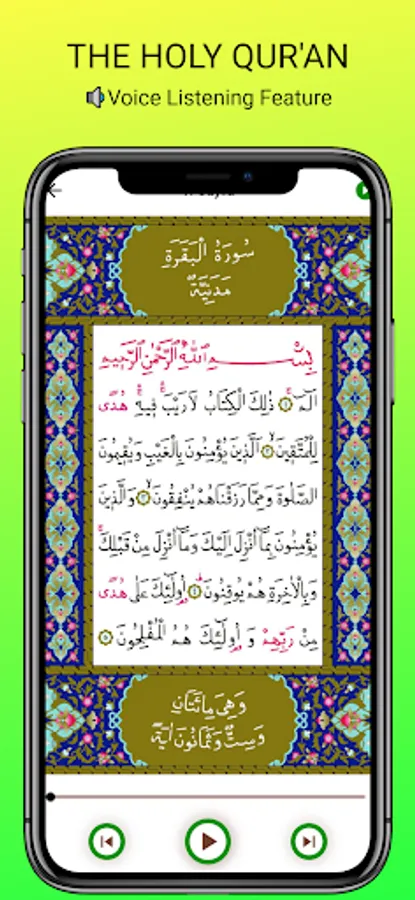 THE HOLY QUR'AN
Voice Listening Feature
سُورَةُ الْبَقَرَةِ
مَدَنِيَّةٌ
بِسْمِ اللّٰهِ الرَّحْمٰنِ الرَّحِيمِ
الٓمٓ ۝١ ذٰلِكَ الْكِتَابُ لَا رَيْبَ فِيهِ هُدًى
لِلْمُتَّقِينَ ۝٢ اَلَّذِينَ يُؤْمِنُونَ بِالْغَيْبِ وَيُقِيمُونَ
الصَّلٰوةَ وَمِمَّا رَزَقْنَاهُمْ يُنْفِقُونَ ۝٣ وَالَّذِينَ
يُؤْمِنُونَ بِمَٓا اُنْزِلَ اِلَيْكَ وَمَٓا اُنْزِلَ مِنْ قَبْلِكَ
وَبِالْاٰخِرَةِ هُمْ يُوقِنُونَ ۝٤ اُولٰٓئِكَ عَلٰى هُدًى
مِنْ رَبِّهِمْ وَاُولٰٓئِكَ هُمُ الْمُفْلِحُونَ ۝٥
وَهِيَ مِائَتَانِ
وَسِتٌّ وَثَمَانُونَ اٰيَةً